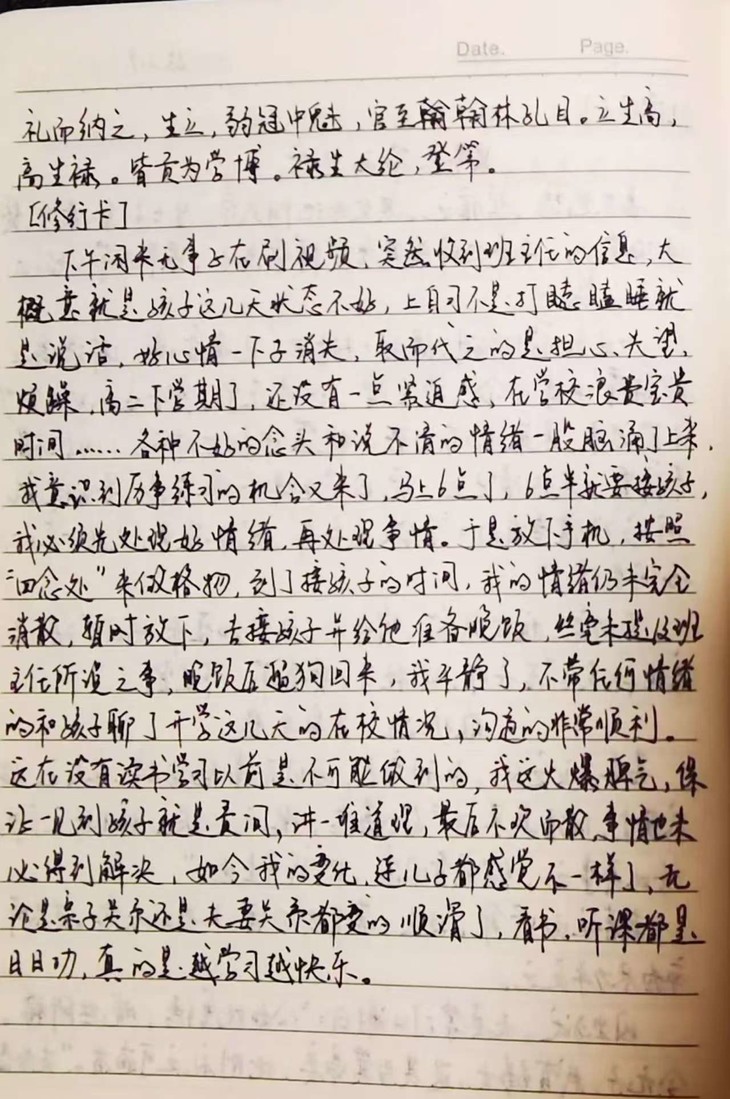 Date. Page.
礼而纳之，生立，弱冠中魁，官至翰翰林孔目。立生高，
高生禄。皆贡为学博。禄生大纶，登第。
[修行卡]
下午闲来无事正在刷视频，突然收到班主任的信息，大
概意就是孩子这几天状态不好，上自习不是打瞌瞌睡就
是说话，好心情一下子消失，取而代之的是担心、失望、
烦躁，高二下学期了，还没有一点紧迫感，在学校浪费宝贵
时间……各种不好的念头和说不清的情绪一股脑涌了上来，
我意识到历事练习的机会又来了，马上6点了，6点半就要接孩子，
我必须先处理好情绪，再处理事情。于是放下手机，按照
“四念处”来做格物，到了接孩子的时间，我的情绪仍未完全
消散，暂时放下，去接孩子并给他准备晚饭，丝毫未提及班
主任所说之事，晚饭后遛狗回来，我平静了，不带任何情绪
的和孩子聊了开学这几天的在校情况，沟通的非常顺利。
这在没有读书学习以前是不可能做到的，我这火爆脾气，保
证一见到孩子就是责问，讲一堆道理，最后不欢而散，事情也未
必得到解决，如今我的变化，连儿子都感觉不一样了，无
论是亲子关系还是夫妻关系都变的顺滑了，看书、听课都是
日日功，真的是越学习越快乐。